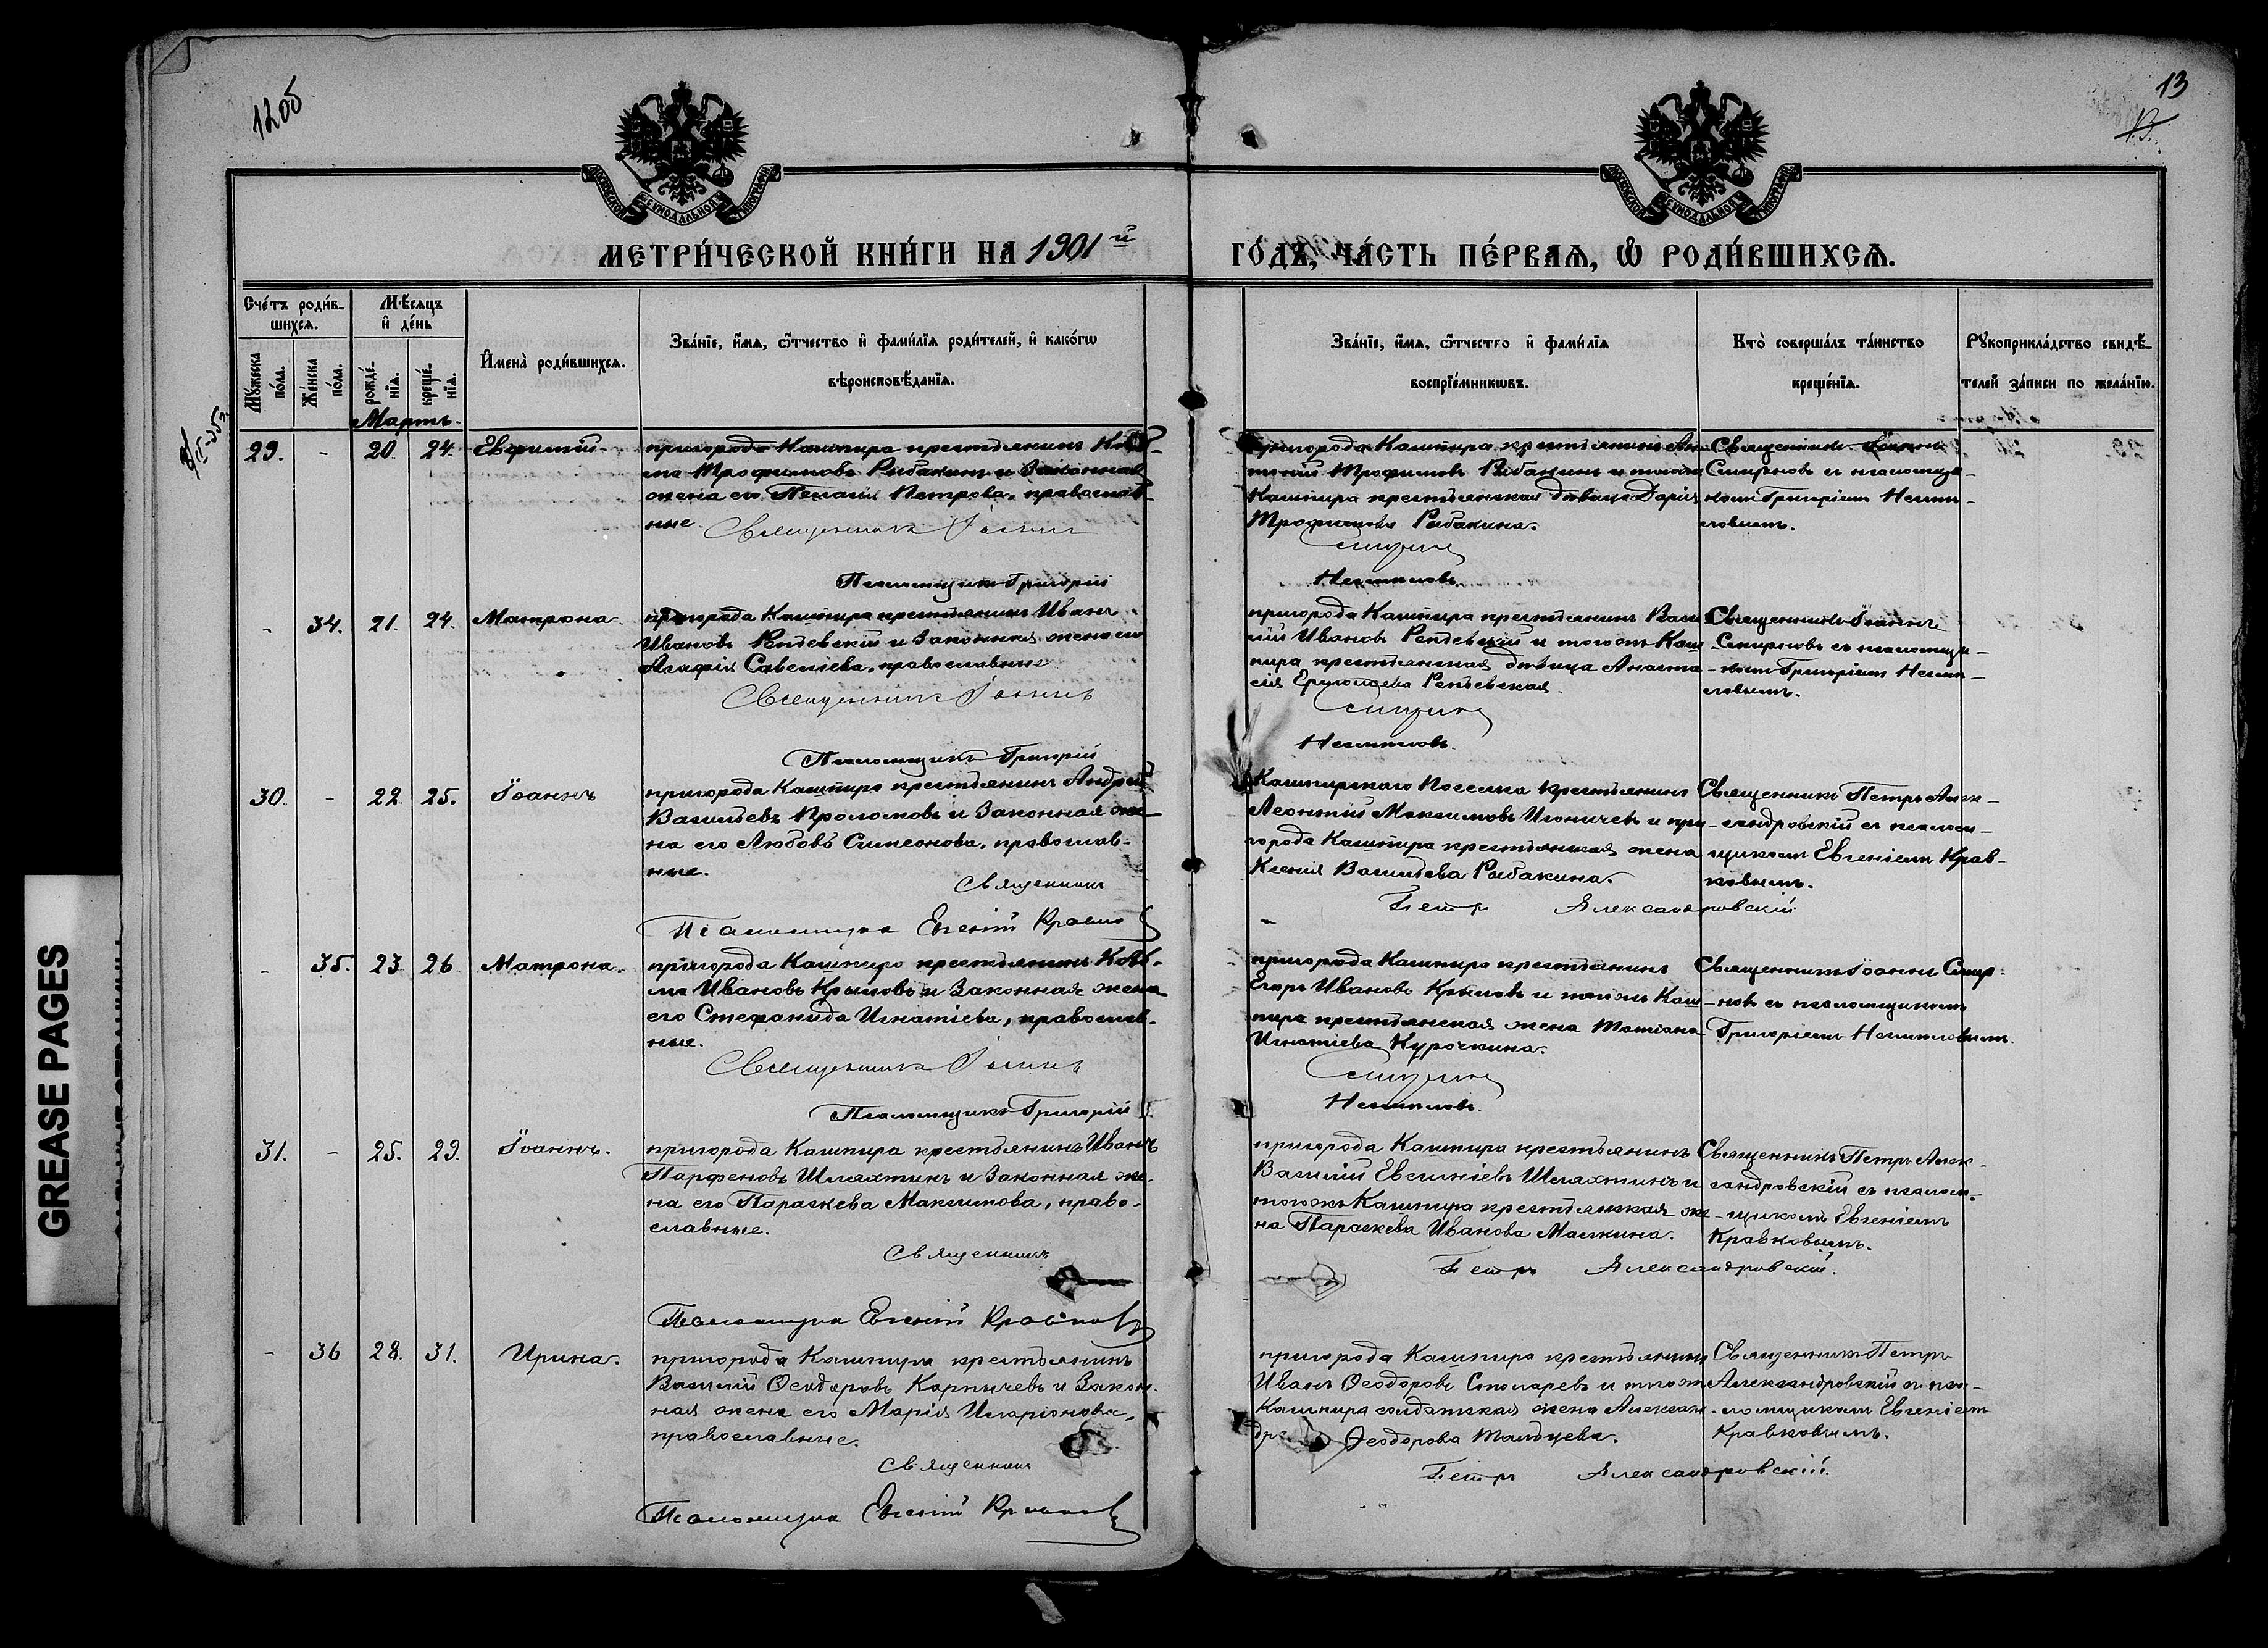 12об
13
13.
МОСКОВСКОЙ СѴНОДАЛЬНОЙ ТИПОГРАФІИ
МОСКОВСКОЙ СѴНОДАЛЬНОЙ ТИПОГРАФІИ
МЕТРИ́ЧЕСКОЙ КНИ́ГИ НА 1901й
ГО́ДЪ, ЧА́СТЬ ПЕ́РВАѦ, Ѡ҆ РОДИ́ВШИХСѦ.
Сче́тъ роди́в-
шихсѧ.
Мѣ́сѧцъ
и҆ де́нь
Мꙋ́жеска
по́ла.
Же́нска
по́ла.
рожде́-
нїѧ.
креще́-
нїѧ.
И҆мена̀ роди́вшихсѧ.
Зва́нїе, и҆́мѧ, ѻ҆́тчество и҆ фами́лїѧ роди́телей, и҆ како́гѡ
вѣроисповѣ́данїѧ.
Зва́нїе, и҆́мѧ, ѻ҆́тчество и҆ фами́лїѧ
воспрїе́мникѡвъ.
Кто̀ соверша́лъ та́инство
креще́нїѧ.
Рꙋкоприкла́дство свидѣ́-
телей за́писи по жела́нїю.
Мартъ.
29.
-
20.
24.
Евфимій
пригорода Кашпира крестьянинъ Козь-
ма Трофимовъ Рыбакинъ и законная
жена его Пелагія Петрова, православ-
ные.
Священникъ Іоаннъ
Псаломщикъ Григорій
пригорода Кашпира крестьянинъ Ан-
Трофимовъ Рыбакинъ и тогожъ
Кашпира крестьянская дѣвица Дарія
Трофимова Рыбакина.
Смирновъ
Несмѣловъ
Священникъ Іоаннъ
Смирновъ съ псаломщи-
комъ Григоріемъ Несмѣ-
ловымъ.
-
34.
21.
24.
Матрона.
пригорода Кашпира крестьянинъ Иванъ
Ивановъ Репьевскій и законная жена его
Агафія Савельева, православные
Священникъ Іоаннъ
Псаломщикъ Григорій
пригорода Кашпира крестьянинъ Васи-
лій Ивановъ Репьевскій и тогожъ Каш-
пира крестьянская дѣвица Анаста-
сія Ермолаева Репьевская.
Смирновъ
Несмѣловъ.
Священникъ Іоаннъ
Смирновъ съ псаломщи-
комъ Григоріемъ Несмѣ-
ловымъ.
30.
-
22.
25.
Іоаннъ
пригорода Кашпира крестьянинъ Андрей
Васильевъ Проломовъ и законная же-
на его Любовь Симеонова, православ-
ные.
Священникъ
Псаломщикъ Евгеній Кравковъ
Кашпирскаго Поселка крестьянинъ
Леонтій Максимовъ Игоничевъ и при-
города Кашпира крестьянская жена
Ксенія Васильева Рыбакина.
Петръ Александровскій
Священникъ Петръ Алек-
сандровскій съ псалом-
щикомъ Евгеніемъ Крав-
ковымъ.
-
35.
23.
26
Матрона.
пригорода Кашпира крестьянинъ Козь-
ма Ивановъ Крыловъ и законная жена
его Стефанида Игнатіева, православ-
ные.
Священникъ Іоаннъ
Псаломщикъ Григорій
пригорода Кашпира крестьянинъ
Егоръ Ивановъ Крыловъ и тогожъ Каш-
пира крестьянская жена Татіана
Игнатіева Курочкина.
Смирновъ
Несмѣловъ.
Священникъ Іоаннъ Смир-
новъ съ псаломщикомъ
Григоріемъ Несмѣловымъ.
31.
-
25.
29.
Іоаннъ.
пригорода Кашпира крестьянинъ Иванъ
Парфеновъ Шлахтинъ и законная же-
на его Параскева Максимова, право-
славные.
Священникъ
Псаломщикъ Евгеній Кравковъ
пригорода Кашпира крестьянинъ
Василій Евгеніевъ Шлахтинъ и
тогожъ Кашпира крестьянская же-
на Параскева Иванова Малкина.
Петръ Александровскій.
Священникъ Петръ Алек-
сандровскій съ псалом-
щикомъ Евгеніемъ
Кравковымъ.
-
36
28.
31.
Ирина.
пригорода Кашпира крестьянинъ
Василій Ѳеодоровъ Карпычевъ и закон-
ная жена его Марія Иларіонова,
православные.
Священникъ
Псаломщикъ Евгеній Кравковъ
пригорода Кашпира крестьянинъ
Иванъ Ѳеодоровъ Столаревъ и тогожъ
Кашпира солдатская жена Алексан-
дра Ѳеодорова Мальцева.
Петръ Александровскій.
Священникъ Петръ
Александровскій съ пса-
ломщикомъ Евгеніемъ
Кравковымъ.
GREASE PAGES